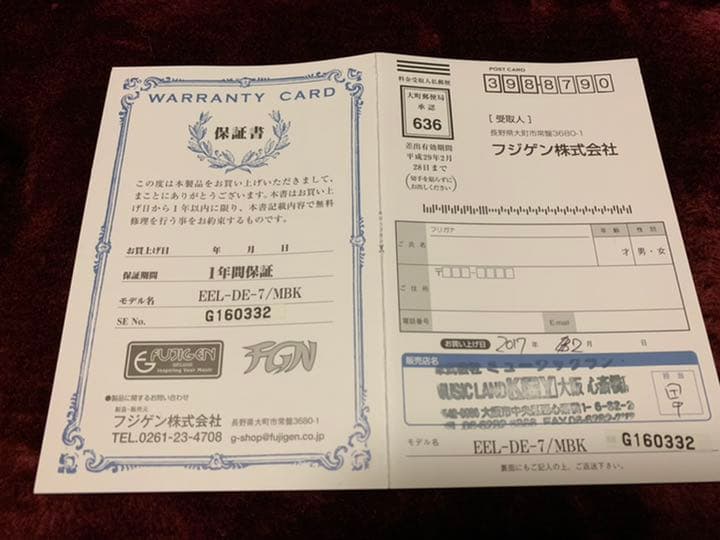 WARRANTY CARD
保証書
この度は本製品をお買い上げいただきまして、
まことにありがとうございます。本書はお買い上
げ日から1年以内に限り、本書記載内容で無料
修理を行う事をお約束するものです。
お買上げ日 年 月 日
保証期間 1年間保証
モデル名 EEL-DE-7/MBK
SE No. G160332
FUJIGEN
Inspiring Your Music
FGN
●製品に関するお問い合わせ
製造・販売元
フジゲン株式会社 長野県大町市常盤3680-1
TEL.0261-23-4708 g-shop@fujigen.co.jp
POST CARD
料金受取人払郵便
3988790
大町郵便局
承認
636
差出有効期間
平成29年2月
28日まで
(切手を貼らずに
お出しください)
[受取人]
長野県大町市常盤3680-1
フジゲン株式会社
フリガナ
ご氏名
年齢 性別
才 男・女
〒
ご住所
電話番号
E-mail
お買い上げ日 2017年 2月 日
販売店名
MUSIC LAND KEY 大阪 心斎橋店
担当
田中
モデル名 EEL-DE-7/MBK G160332
裏面にもご記入の上、ご返送下さい。